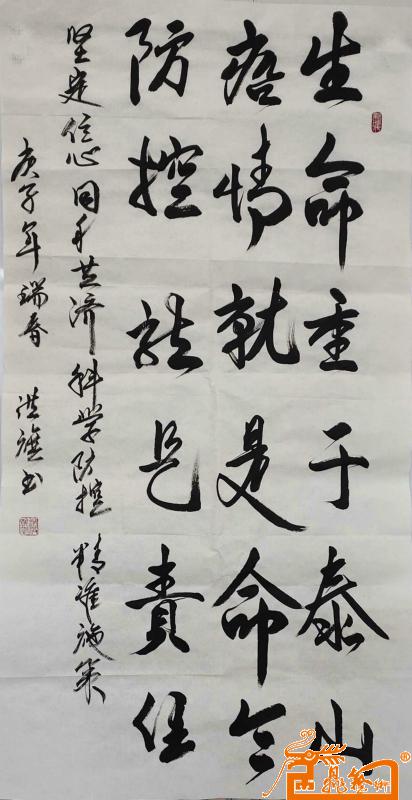 生命重于泰山
疫情就是命令
防控就是責任
坚定信心同舟共济科学防控精准施策
庚子年瑞春 洪旗书